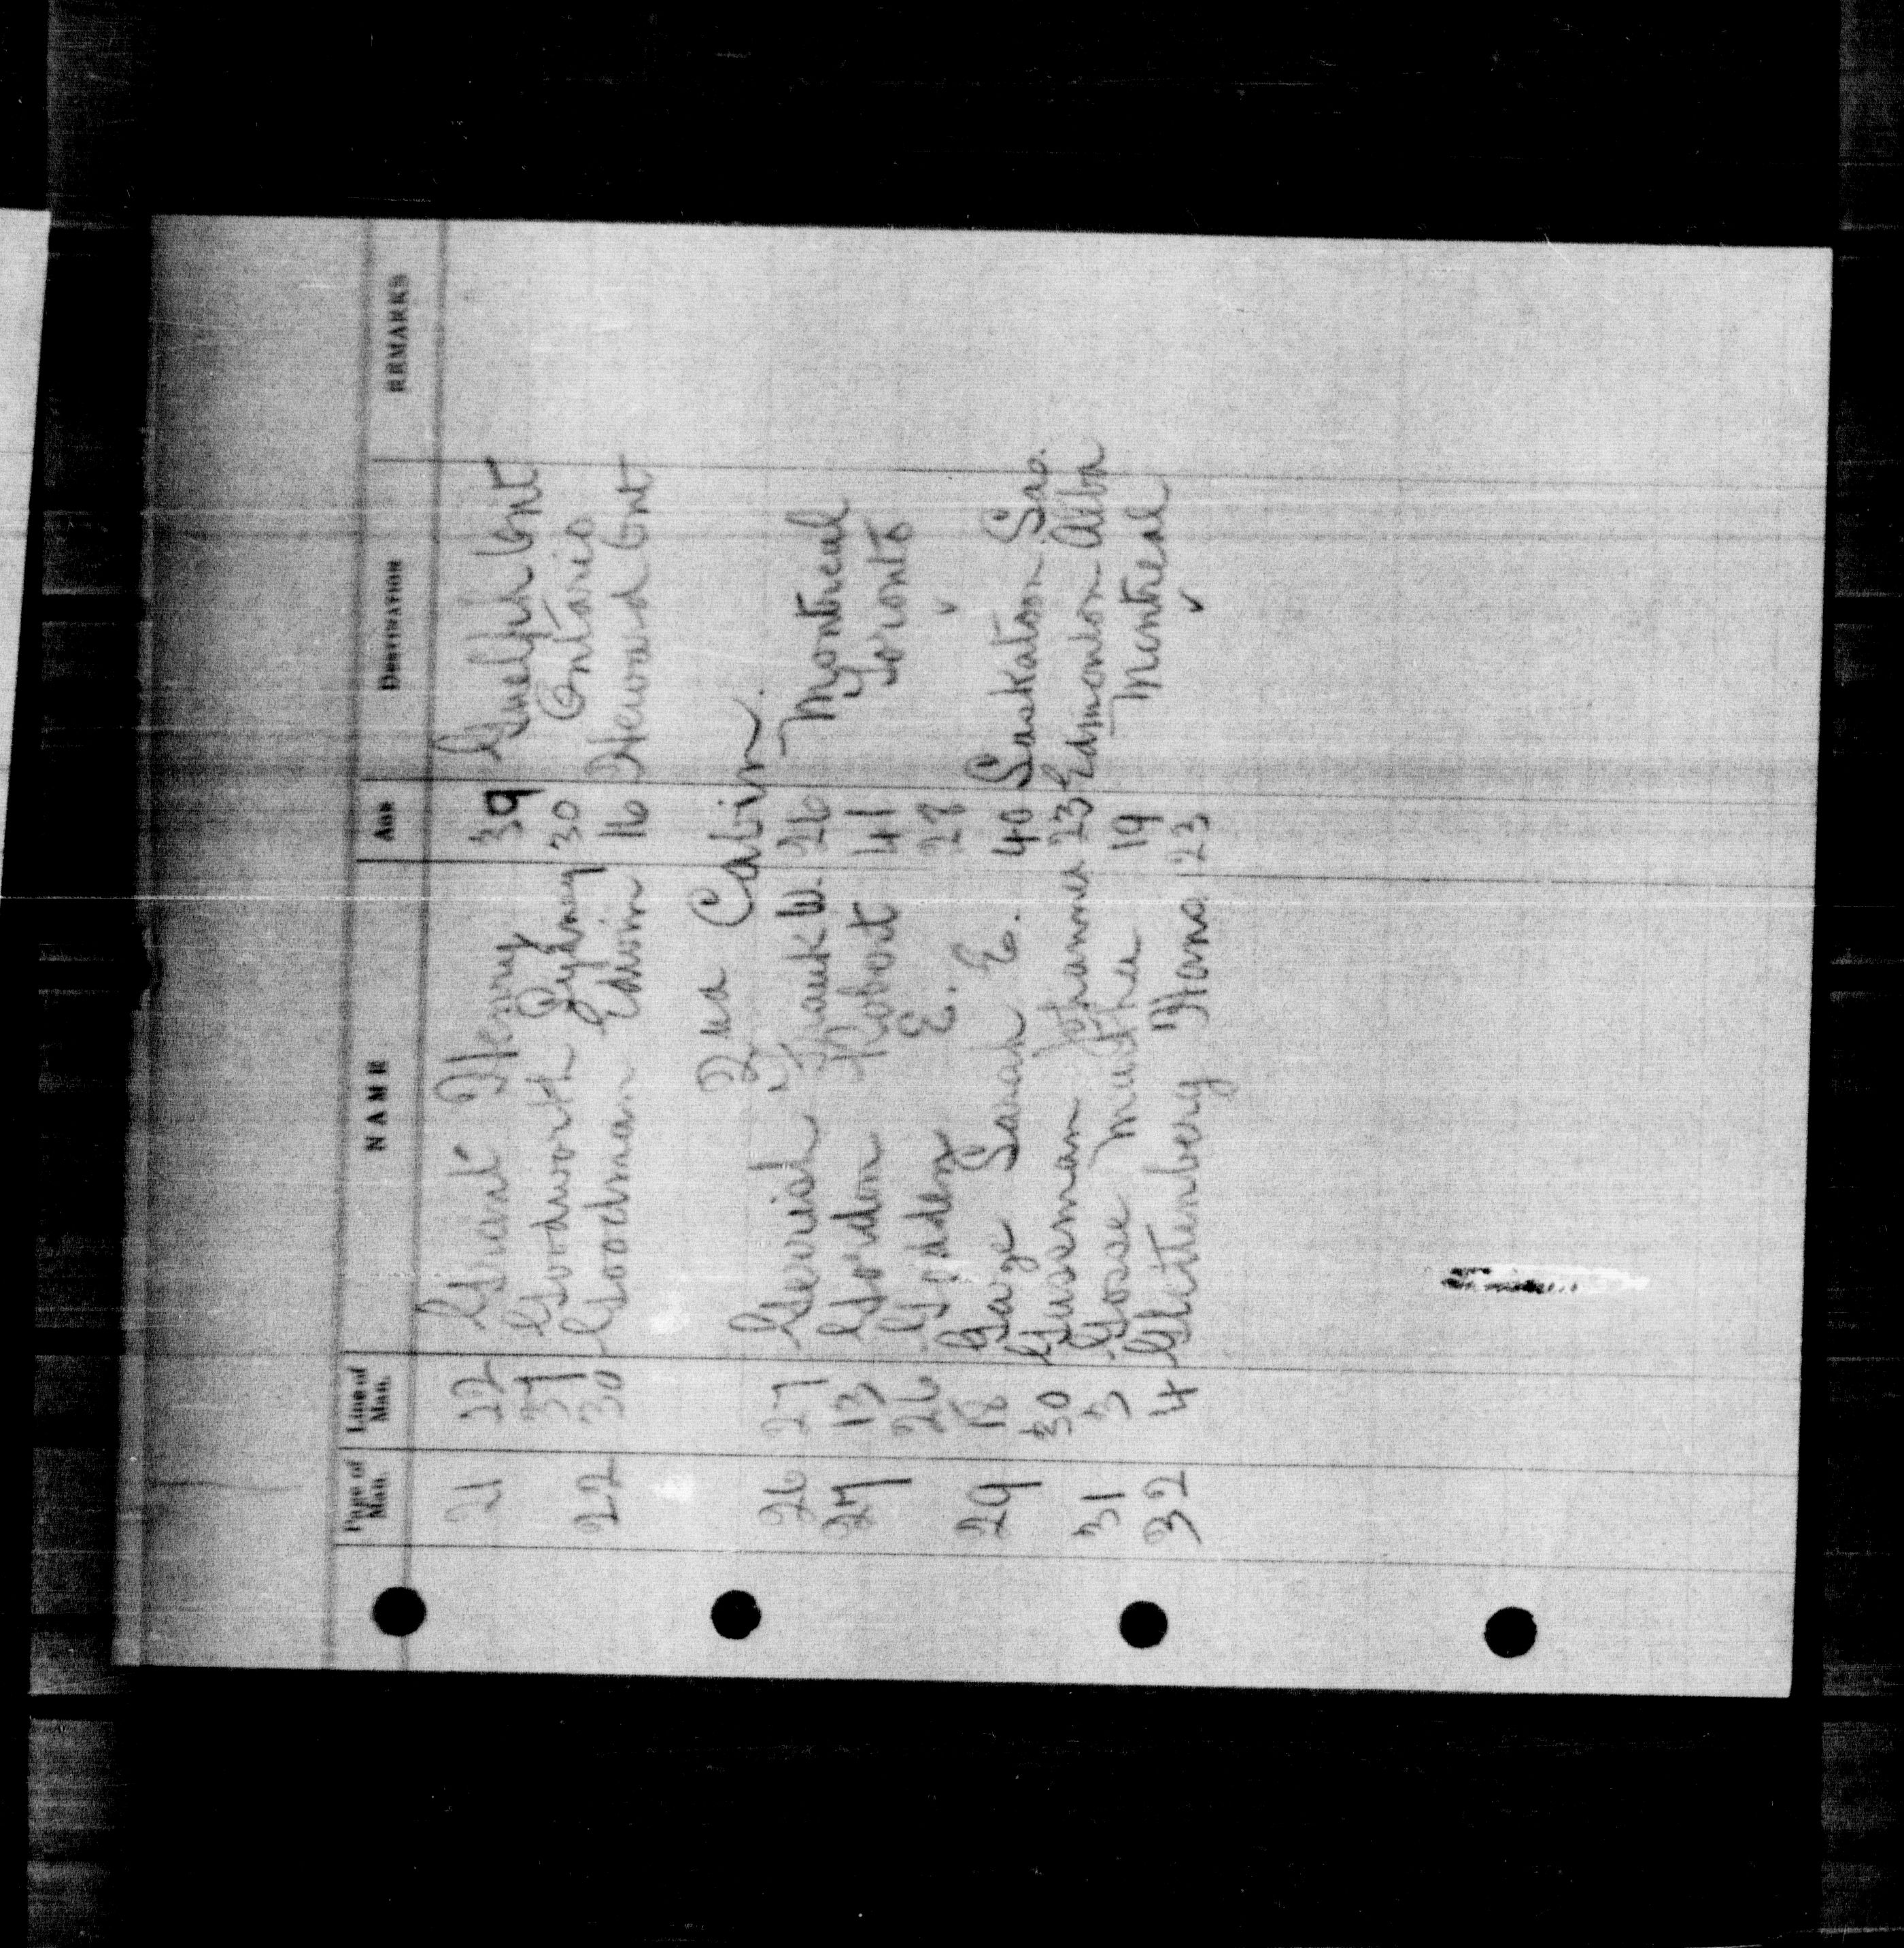 Page of Man. Line of Man. NAME AGE DESTINATION REMARKS
21 22 Grant Henry 39 Guelph Ont
37 Goodworth Sydney 30 Ontario
22 30 Goodman Edwin 16 Ont
2nd Cabin
26 27 Gerrish Frank W. 26 Montreal
27 13 Gordon Robert 41 Toronto
26 E. 28 ✓
29 18 Gage Sarah E. 40 Saskatoon Sas.
30 Gussman 23 Edmonton Alba
31 3 Gosse 19 Montreal
32 4 Hans 23 ✓